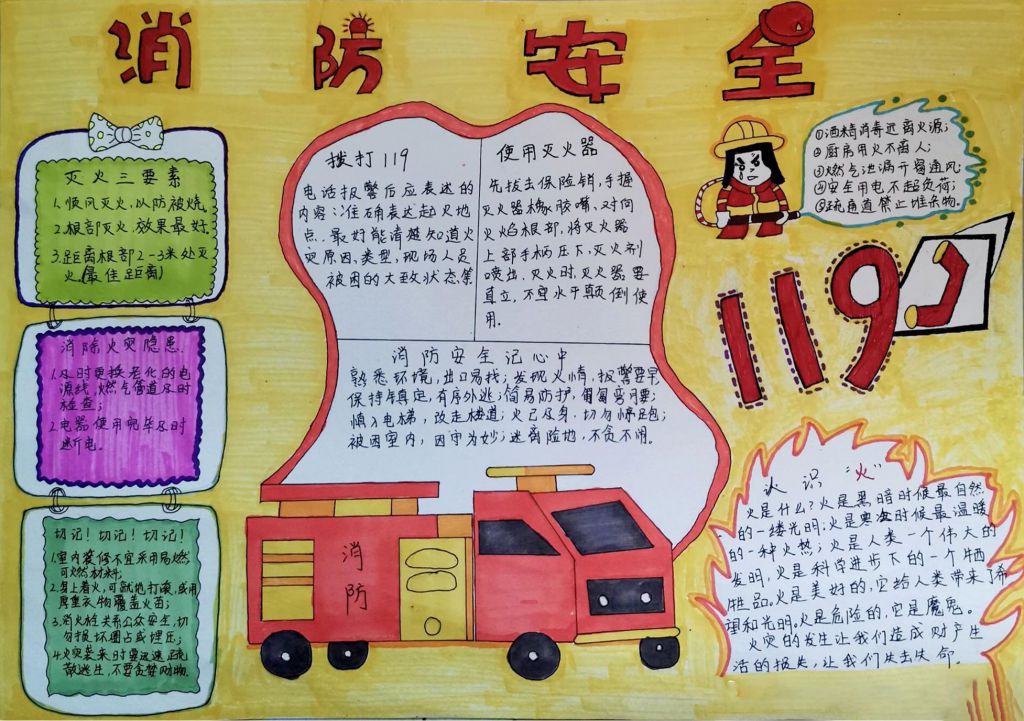 消防安全
灭火三要素
1.顺风灭火,以防被烧.
2.根部灭火,效果最好.
3.距离根部2-3米处灭
火.(最佳距离)
消除火灾隐患.
1.及时更换老化的电
源线,燃气管道及时
检查;
2.电器使用完毕及时
断电.
切记!切记!切记!
1.室内装修不宜采用易燃
可燃材料;
2.身上着火,可就地打滚,或用
厚重衣物覆盖火苗;
3.消火栓关系公众安全,切
勿损坏圈占或埋压;
4.火灾袭来时要迅速疏
散逃生,不要贪婪财物.
拨打119
电话报警后应表述的
内容:准确表达起火地
点.最好能清楚知道火
灾原因,类型,现场人员
被困的大致状态等
使用灭火器
先拔去保险销,手握
灭火器橡胶嘴,对向
火焰根部,将灭火器
上部手柄压下,灭火剂
喷出.灭火时,灭火器要
直立,不宜水平颠倒使
用.
消防安全记心中
熟悉环境,出口易找;发现火情,报警要早
保持镇定,有序外逃;简易防护,匍匐弯腰;
慎入电梯,改走楼道;火已及身,切勿惊跑;
被困室内,固守为妙;迷离险地,不贪不闹。
消
防
①酒精消毒远离火源;
②厨房用火不离人;
③燃气泄漏开窗通风;
④安全用电不超负荷;
⑤疏通道禁止堆杂物.
119
认识“火”
火是什么?火是黑暗时候最自然
的一缕光明;火是寒冷时候最温暖
的一种火热;火是人类一个伟大的
发明,火是科学进步下的一个牺
牲品.火是美好的,它给人类带来了希
望和光明.火是危险的,它是魔鬼。
火灾的发生让我们造成财产生
活的损失,让我们失去失命.